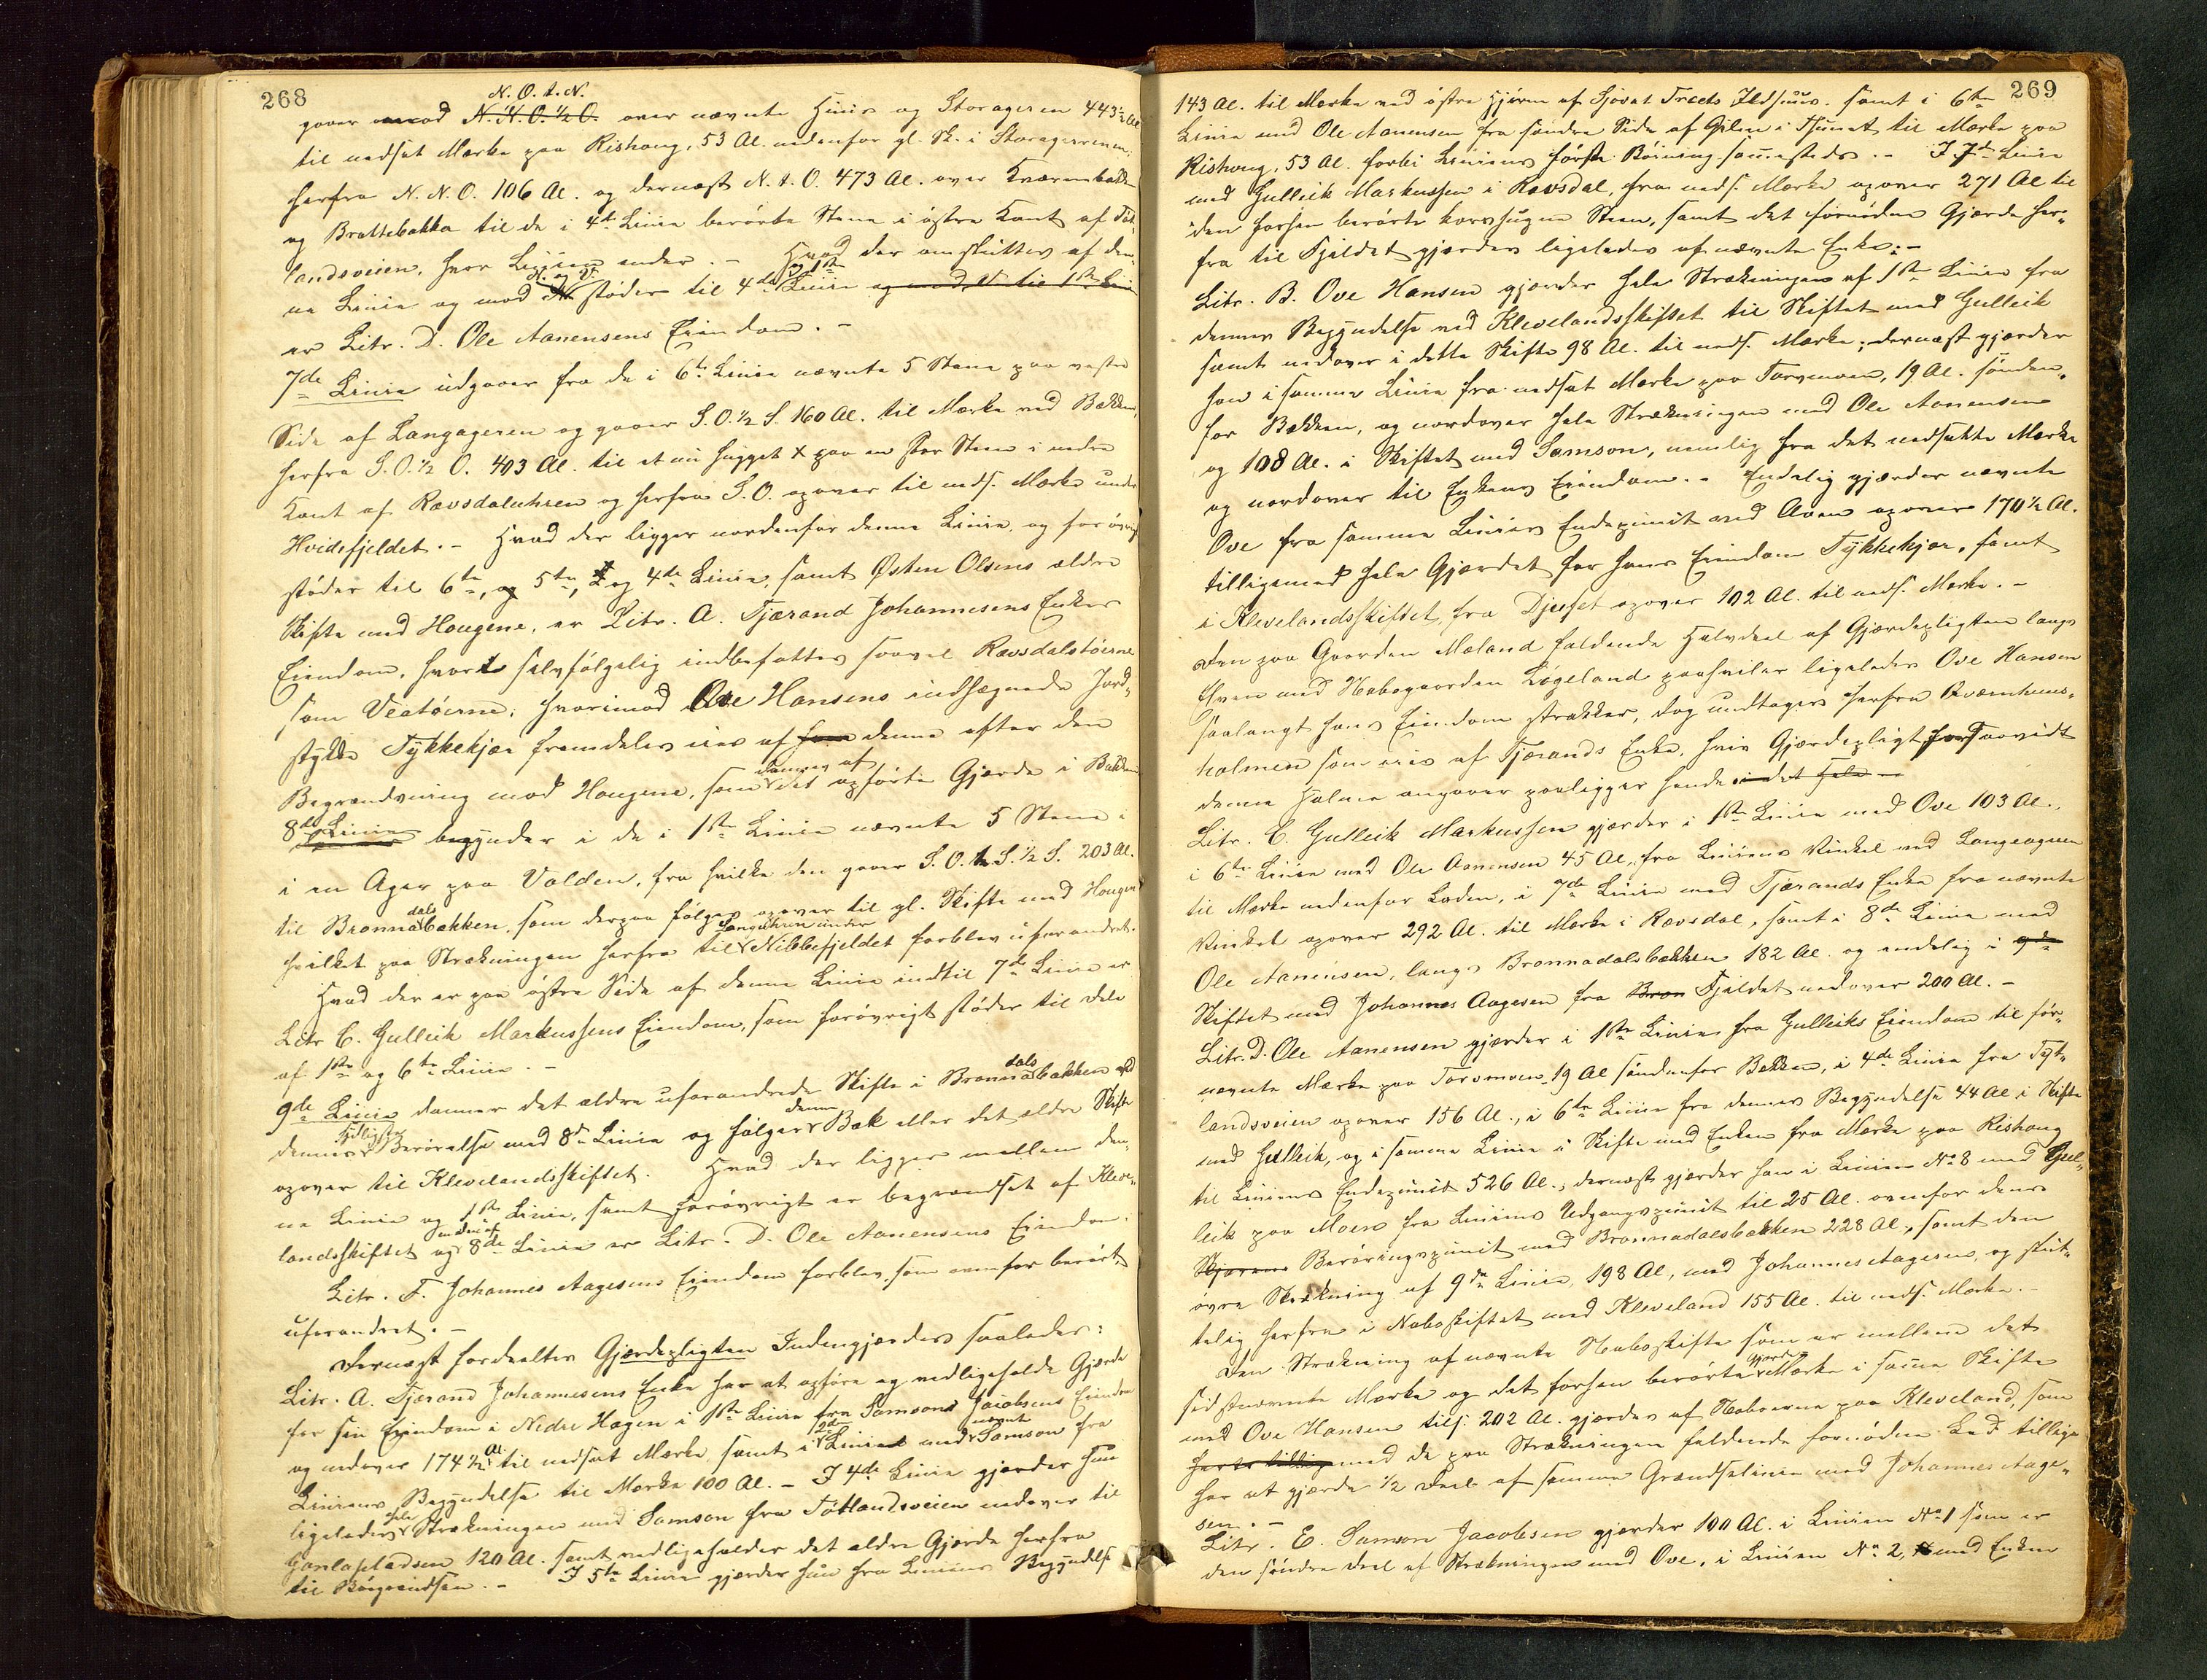 268
N. O. t. N.
gaaer mod N. N. O. ½ O. over nævnte Huus og Storageren 443½ Al
til nedsat Mærke paa Rishoug, 53 Al. nedenfor gl. Sk. i Storagerrenen;
herfra N. N. O. 106 Al. og dernæst N. t. O. 473 Al. over Kværnebakken
og Brattebakka til de i 4de Linie berørte Stene i østre Kant af Tøt-
landsveien, hvor Linien ender. – Hvad der omsluttes af den-
S. og V. og 1ste
ne Linie og mod N. støder til 4de Linie og mod V. til 1ste Linie
er Litr. D. Ole Aanensens Eiendom. –
7de Linie udgaaer fra de i 6te Linie nævnte 5 Stene paa vestre
Side af Langageren og gaaer S. O. ½ S. 160 Al. til Mærke ved Bækken,
herfra S. O. ½ O. 403 Al. til et nu hugget X paa en stor Steen i nedre
Kant af Ravsdaluhren og herfra S. O. opover til neds. Mærke under
Hvidefjeldet. – Hvad der ligger nordenfor denne Linie og forøvrigt
støder til 6te, og 5te, 2 og 4de Linie, samt Østen Olsens ældre
Skifte med Hougene, er Litr. A. Tjærand Johannesens Enkes
Eiendom, hvori selvfølgelig indbefattes saavel Ravsdalstøerne
som Veatøerne; hvorimod Ove Hansens indhegnede Jord-
stykke Tykkekjær fremdeles eies af ham denne efter den
Begrændsning mod Hougene, som Sameig af det opførte Gjærde i Bakken
8de Linie begynder i de i 1ste Linie nævnte 5 Stene i
i en Ager paa Volden, fra hvilke den gaaer S. O. t. S. ½ S. 203 Al.
til Brønnadalsbækken, som derpaa følges opover til gl. Skifte med Hougene
hvilket paa Strækningen herfra til Langeuhren under Nibbefjeldet forblev uforandret.
Hvad der er paa østre Side af denne Linie indtil 7de Linie er
Litr C. Gulleik Markussens Eiendom, som forøvrigt støder til Dele
af 1ste og 6te Linie. –
9de Linie danner det ældre uforandrede Skifte i Brønnadalsbækken ved
dennes sydligste Berørelse med 8de Linie og følger denne Bæk eller det ældre Skifte
opover til Klevelandsskiftet. Hvad der ligger mellem den-
ne Linie og 1ste Linie, samt forøvrigt er begrændset af Kleve-
landsskiftet og 8de Linie er Litr. D. Ole Aanensens Eiendom.
Litr. F. Johannes Aagesens Eiendom forblev, som ovenfor berørt,
uforandret. –
Dernæst fordeeltes Gjærdepligten Indengjærdes saaledes:
Litr. A. Tjærand Johannesens Enke har at opføre og vedligeholde Gjærde
for sin Eiendom i Nedre Hagen i 1ste Linie fra Samson Jacobsens Eiendom
og nedover 174½ Al. til nedsat Mærke, samt i 2den Linie med nævnte Samson fra
Liniens Begyndelse til Mærke 100 Al. – I 4de Linie gjærder hun
ligeledes hele Strækningen med Samson fra Tøtlandsveien nedover til
Garlapladsen 120 Al. samt vedligeholder det ældre Gjærde herfra
til Børgrindsen. – I 5te Linie gjærder hun fra Liniens Begyndelse
269
143 Al. til Mærke ved østre Hjørne af Sjovat Traets Ildhuus. samt i 6te
Linie med Ole Aanensen fra søndre Side af Gilen i Tunet til Mærke paa
Rishoug, 53 Al. forbi Liniens første Bøining sammesteds. – I 7de Linie
med Gulleik Markussen i Ravsdal, fra neds. Mærke opover 271 Al til
den forhen berørte korshugne Steen, samt det fornødne Gjærde her-
fra til Fjeldet gjærdes ligeledes af nævnte Enke: –
Litr. B. Ove Hansen gjærder hele Strækningen af 1ste Linie fra
dennes Begyndelse ved Klevelandsskiftet til Skiftet med Gulleik
samt nedover i dette Skifte 98 Al. til neds. Mærke; dernæst gjærder
han i samme Linie fra nedsat Mærke paa Torvmoen, 19 Al. sønden-
for Bækken, og nordover hele Strækningen med Ole Aanensen
og 108 Al. i Skiftet med Samson, nemlig fra det nedsatte Mærke
og nordover til Enkens Eiendom. – Endelig gjærder nævnte
Ove fra samme Linies Endepunkt ved Aaen opover 170½ Al.
tilligemed hele Gjærdet for hans Eiendom Tykkekjær, samt
i Klevelandsskiftet, fra Djupet opover 102 Al. til neds. Mærke. –
Den paa Gaarden Maland faldende Halvdeel af Gjærdepligten langs
Elven med Nabogaarden Ligeland paahviler ligeledes Ove Hansen
saalangt hans Eiendom strækker, dog undtages herfra Qværnhuus-
holmen som eies af Tjærands Enke, hvis Gjærdepligt for saavidt
denne Holme angaaer paaligger hende i det Hele –
Litr. C. Gulleik Markussen gjærder i 1ste Linie med Ove 103 Al.,
i 6te Linie med Ole Aanensen 45 Al., fra Liniens Vinkel ved Langeageren
til Mærke nedenfor Laden, i 7de Linie med Tjærands Enke fra nævnte
Vinkel opover 292 Al. til Mærke i Ravsdal, samt i 8de Linie med
Ole Aanensen, langs Brønnadalsbækken 182 Al. og endelig i 9de
Skiftet med Johannes Aagesen fra Bron Fjeldet nedover 200 Al. –
Litr. D. Ole Aanensen gjærder i 1ste Linie fra Gulleiks Eiendom til før-
nævnte Mærke paa Torvmoen, 19 Al søndenfor Bækken, i 4de Linie fra Tøt-
landsveien opover 156 Al., i 6te Linie fra dennes Begyndelse 44 Al. i Skifte
med Gulleik, og i samme Linie i Skifte med Enken fra Mærke paa Rishoug
til Liniens Endepunkt 526 Al., dernæst gjærder han i Linien No 8 med Gul-
leik paa Moen fra Liniens Udgangspunkt til 25 Al. ovenfor dens
Skjæren Berøringspunkt med Brønnadalsbækken 228 Al., samt den
øvre Strækning af 9de Linie, 198 Al, med Johannes Aagesen, og slut-
telig herfra i Naboskiftet med Kleveland 155 Al. til neds. Mærke. –
Den Strækning af nævnte Naboskifte som er mellem det
sidstnævnte Mærke og det forhen berørte Gjærde Mærke i samme Skifte
med Ove Hansen tils. 202 Al. gjærdes af Naboerne paa Kleveland, som
har at tillige med de paa Strækningen faldende fornødne Led tillige
har at gjærde ½ Deel af samme Grændselinie med Johannes Aage-
sen. –
Litr. E. Samson Jacobsen gjærder 100 Al. i Linien No 1 som er
den søndre Deel af Strækningen med Ove, i Linien No 2, med Enken